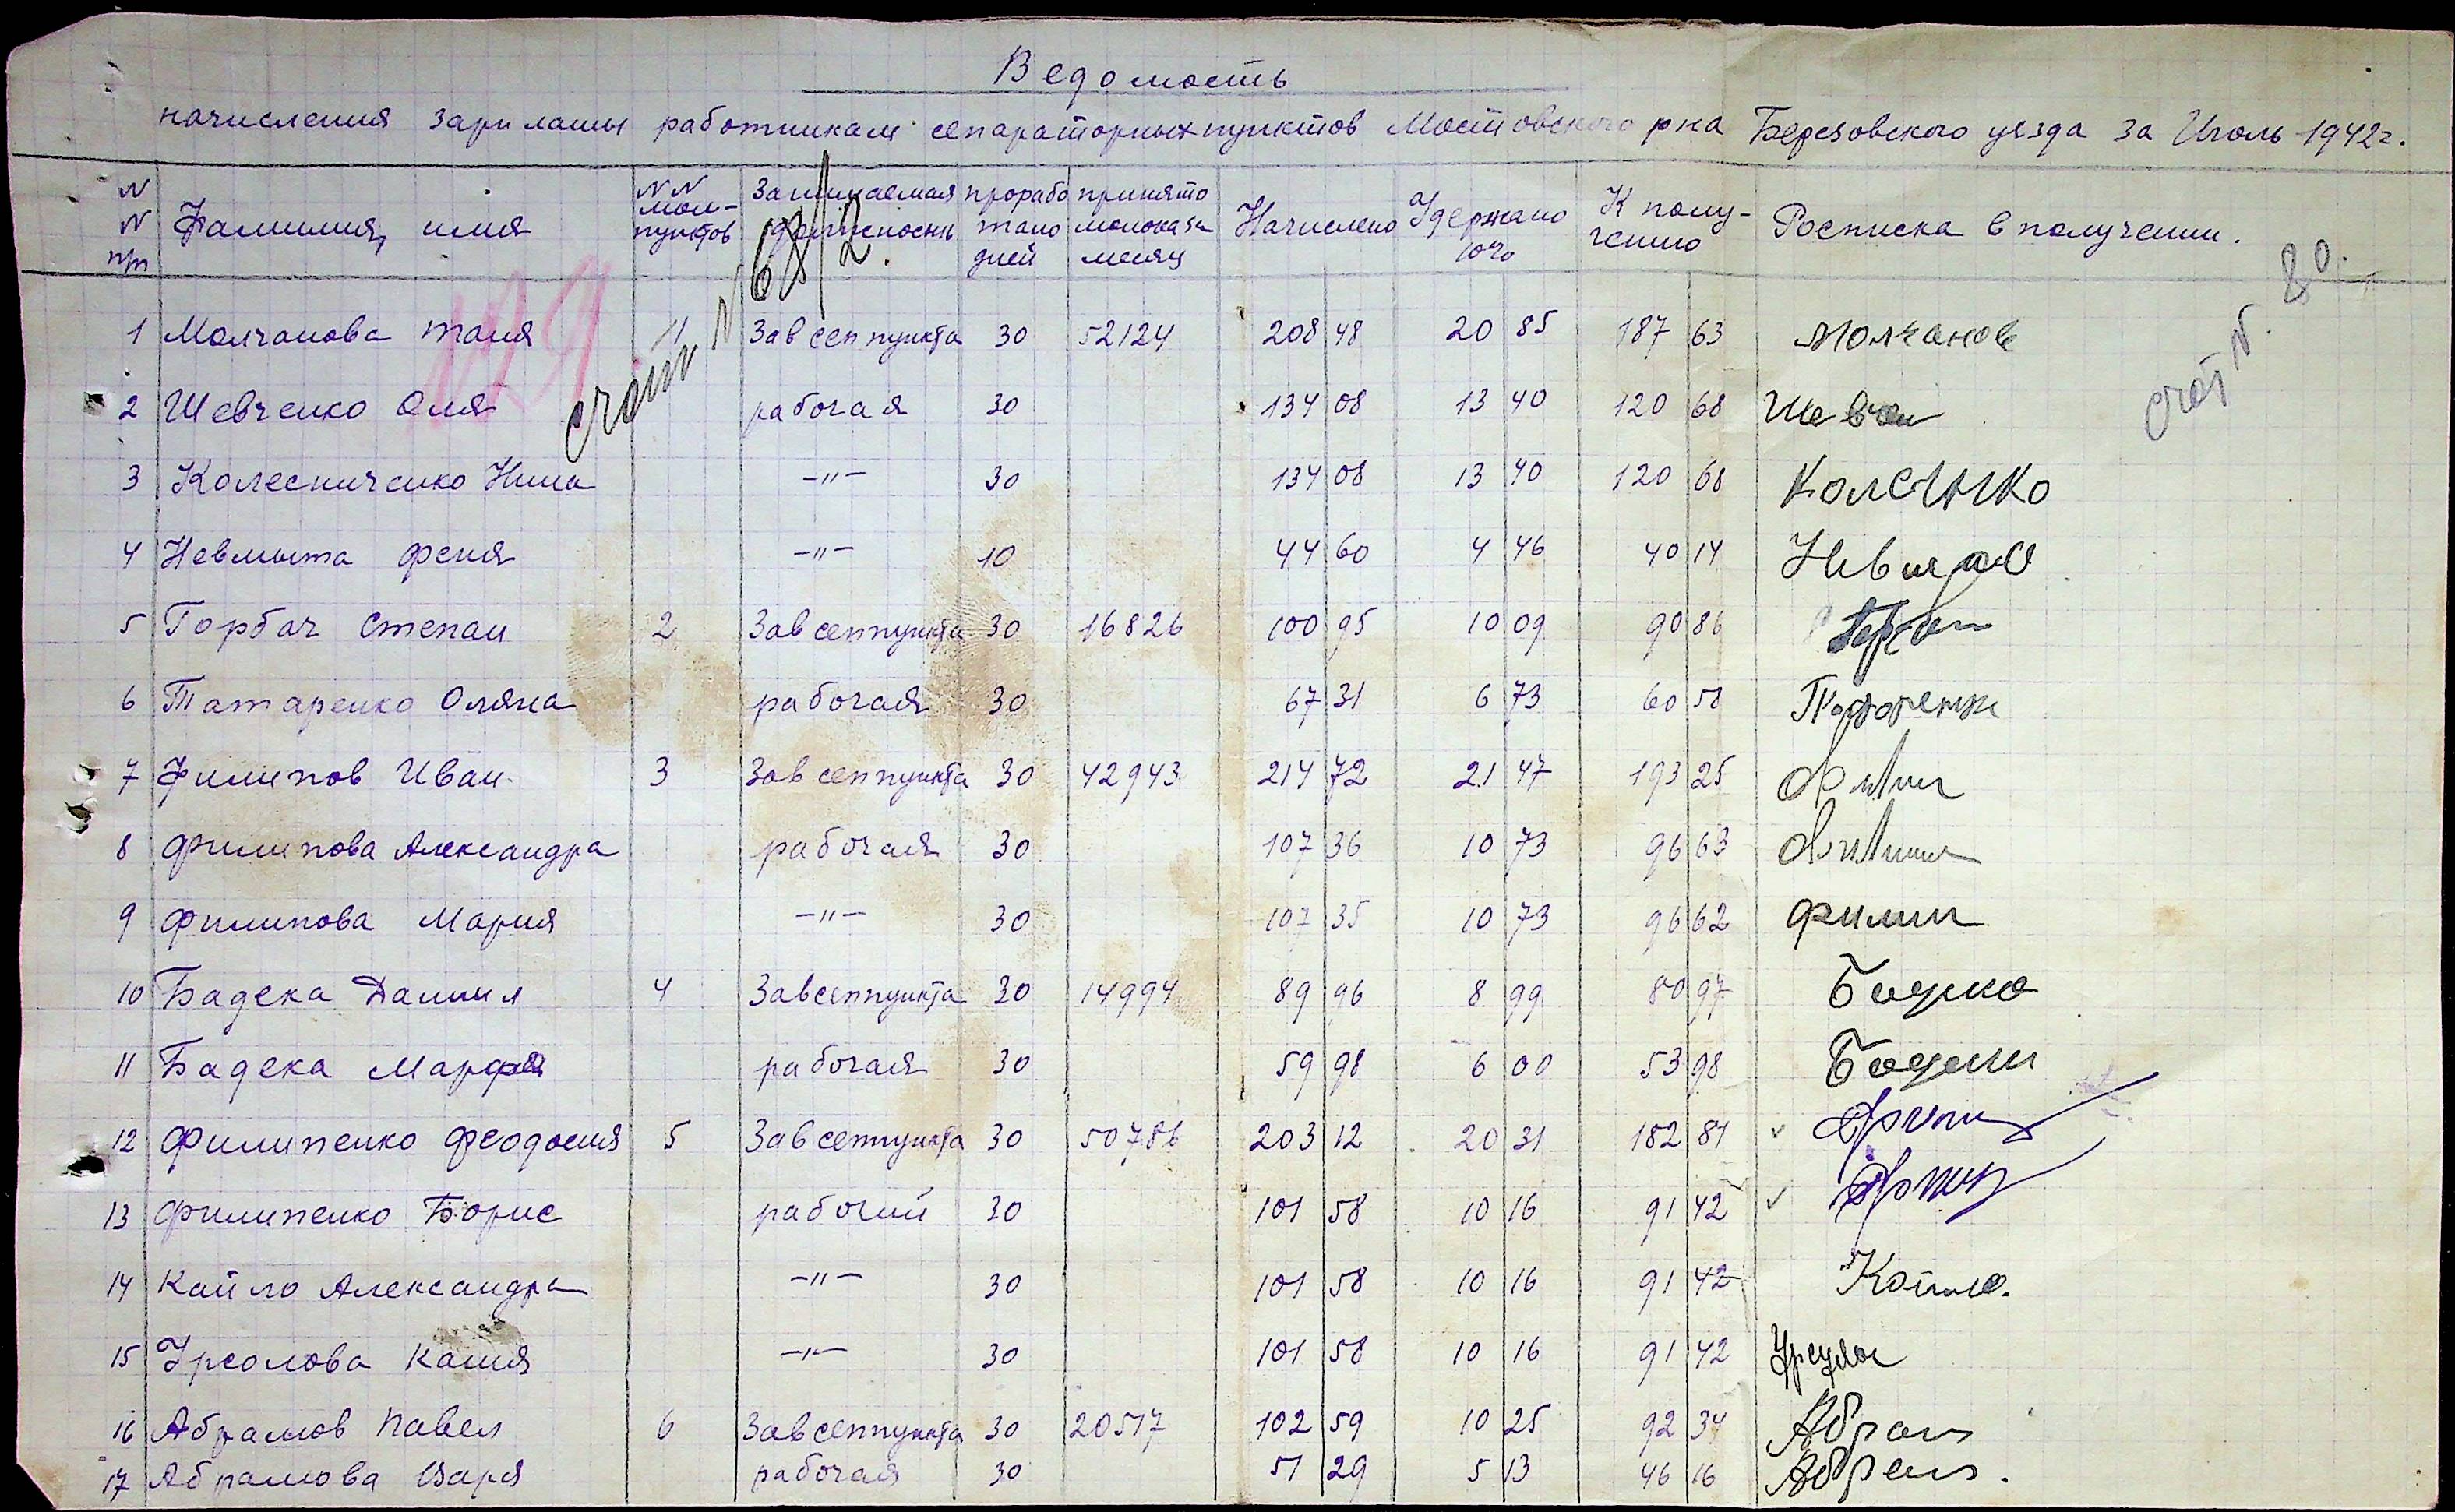 Ведомость
начисления зарплаты работникам сепараторных пунктов Мостовского р-на Березовского уезда за Июль 1942г.
N N п/п Фамилия, имя N N мол-пунктов Занимаемая должность проработано дней принято молока за месяц Начислено Удержано 10% К получению Росписка в получении.
счёт N 68/2.
счет N. 80.
1 Молчанова Таня 1 Зав сеппункта 30 52124 208 48 20 85 187 63 Молчанов
2 Шевченко Оля рабочая 30 134 08 13 40 120 68 Шевчен
3 Колесниченко Нина -"- 30 134 08 13 40 120 68
4 Невмыта Феня -"- 10 44 60 4 46 40 14
5 Горбач Степан 2 Зав сеппункта 30 16826 100 95 10 09 90 86
6 Татаренко Оляна рабочая 30 67 31 6 73 60 58
7 Филипов Иван 3 Зав сеппункта 30 42943 214 72 21 47 193 25
8 Филипова Александра рабочая 30 107 36 10 73 96 63
9 Филипова Мария -"- 30 107 35 10 73 96 62 Филип
10 Бадека Данил 4 Зав сеппункта 30 14994 89 96 8 99 80 97
11 Бадека Марфа рабочая 30 59 98 6 00 53 98
12 Филипенко Феодосия 5 Зав сеппункта 30 50786 203 12 20 31 182 81
13 Филипенко Борис рабочий 30 101 58 10 16 91 42
14 Кайло Александра -"- 30 101 58 10 16 91 42 Койло.
15 Урсолова Катя -"- 30 101 58 10 16 91 42
16 Абрамов Павел 6 Зав сеппункта 30 20517 102 59 10 25 92 34 Абрам
17 Абрамова Варя рабочая 30 51 29 5 13 46 16 Абрам.